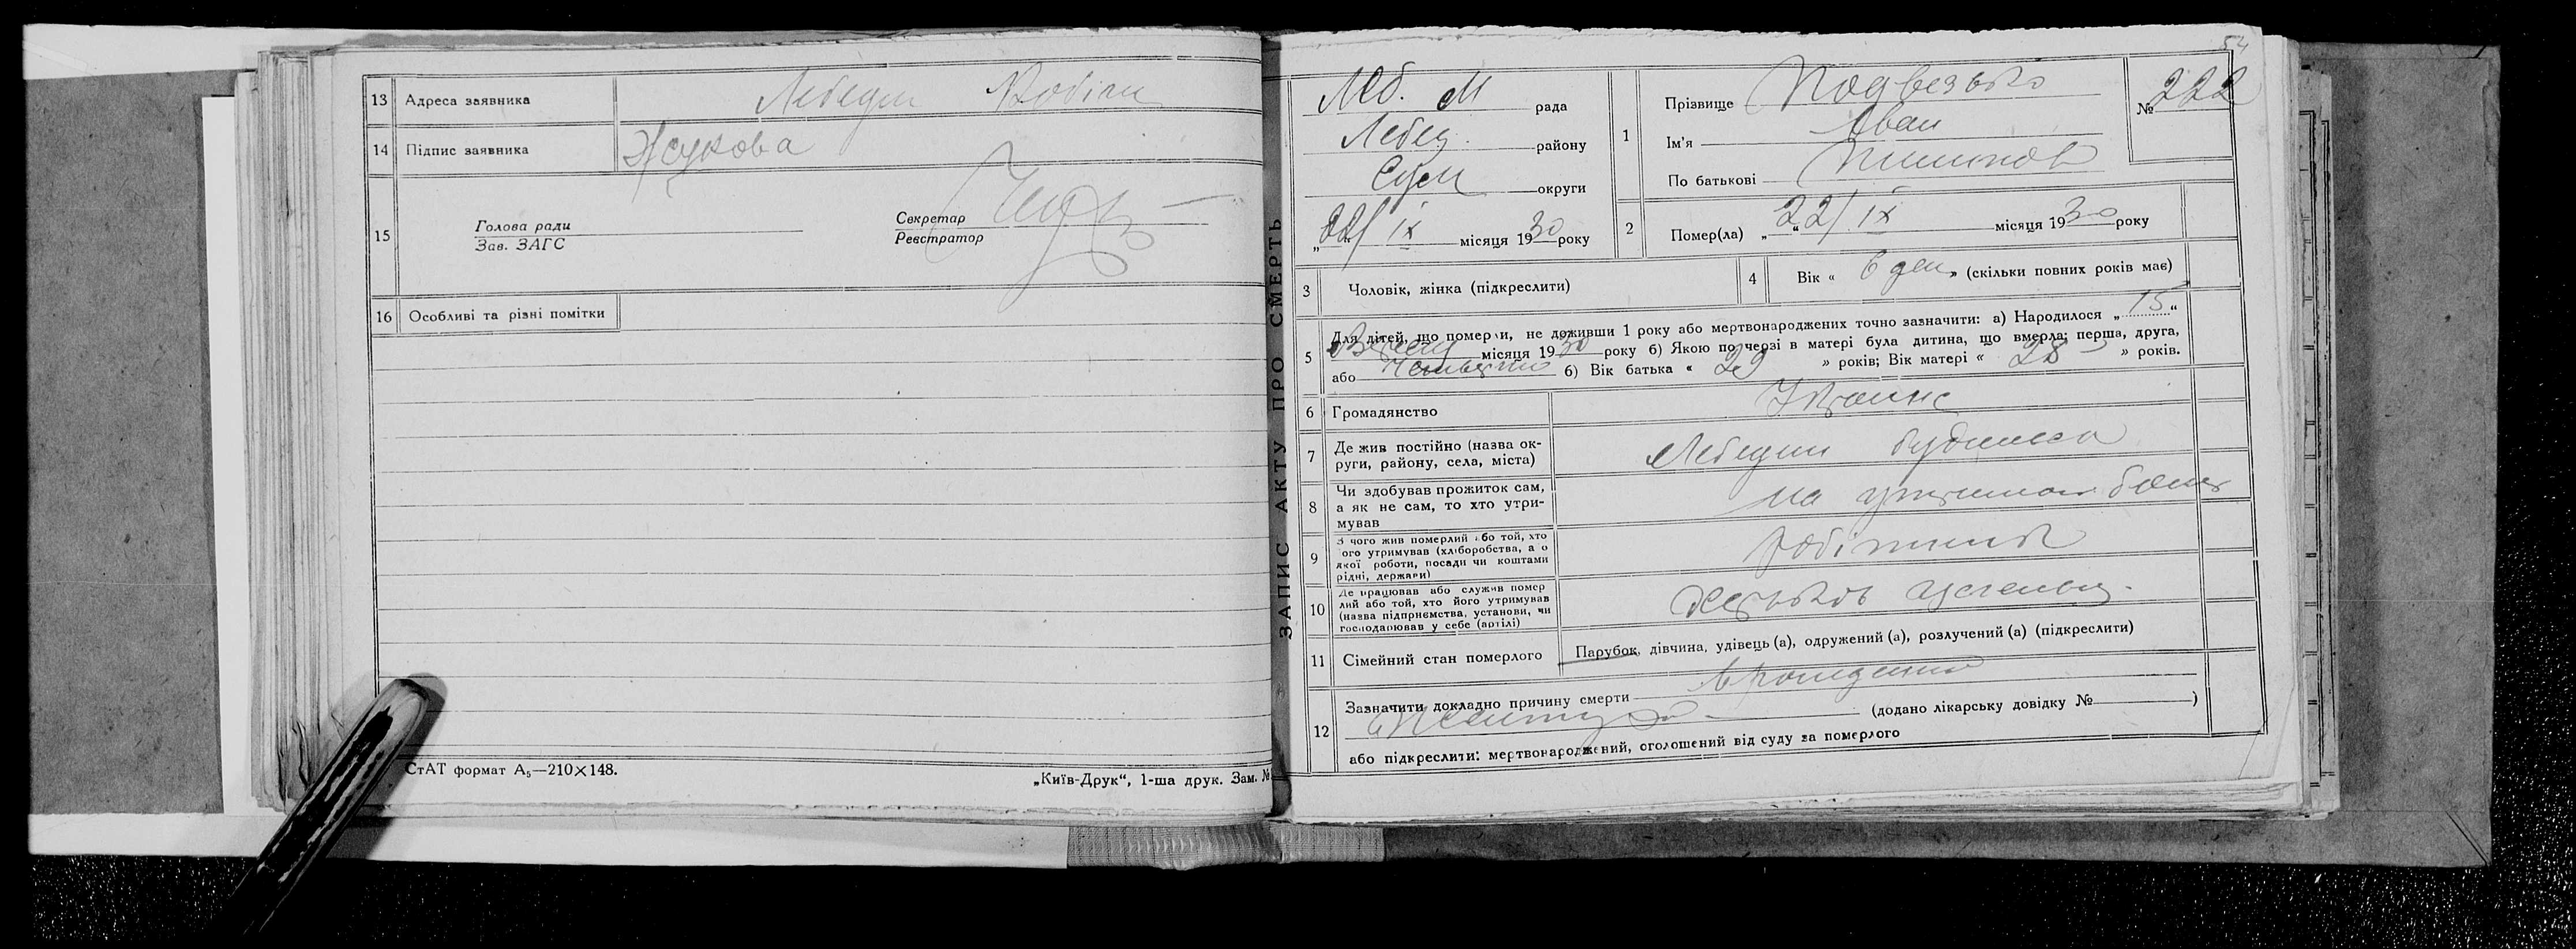 13 Адреса заявника Лебедин
14 Підпис заявника Жукова
15 Голова ради
Зав. ЗАГС
Секретар
Реєстратор
16 Особливі та різні помітки
СтАТ формат А₅—210×148.
„Київ-Друк“, 1-ша друк. Зам. №
ЗАПИС АКТУ ПРО СМЕРТЬ
54
Леб. М рада
Лебед. району
Сум округи
„22/ IX місяця 1930 року
1 Прізвище Подвезько
Ім'я Іван
По батькові
№ 222
2 Помер(ла) „22/ IX місяця 1930 року
3 Чоловік, жінка (підкреслити)
4 Вік « 6 ден » (скільки повних років має)
5 Для дітей, що померли, не доживши 1 року або мертвонароджених точно зазначити: а) Народилося „15“
місяця 1930 року б) Якою по черзі в матері була дитина, що вмерла; перша, друга,
або б) Вік батька « 29 » років; Вік матері « 28 » років.
6 Громадянство
7 Де жив постійно (назва ок-
руги, району, села, міста) Лебедин
8 Чи здобував прожиток сам,
а як не сам, то хто утри-
мував на
9 З чого жив померлий або той, хто
його утримував (хліборобства, а о
якої роботи, посади чи коштами
рідні, держави) робітник
10 Де працював або служив помер
лий або той, хто його утримував
(назва підприємства, установи, чи
господарював у себе (артілі)
11 Сімейний стан померлого Парубок, дівчина, удівець (а), одружений (а), розлучений (а) (підкреслити)
12 Зазначити докладно причину смерти
(додано лікарську довідку № )
або підкреслити: мертвонароджений, оголошений від суду за померлого